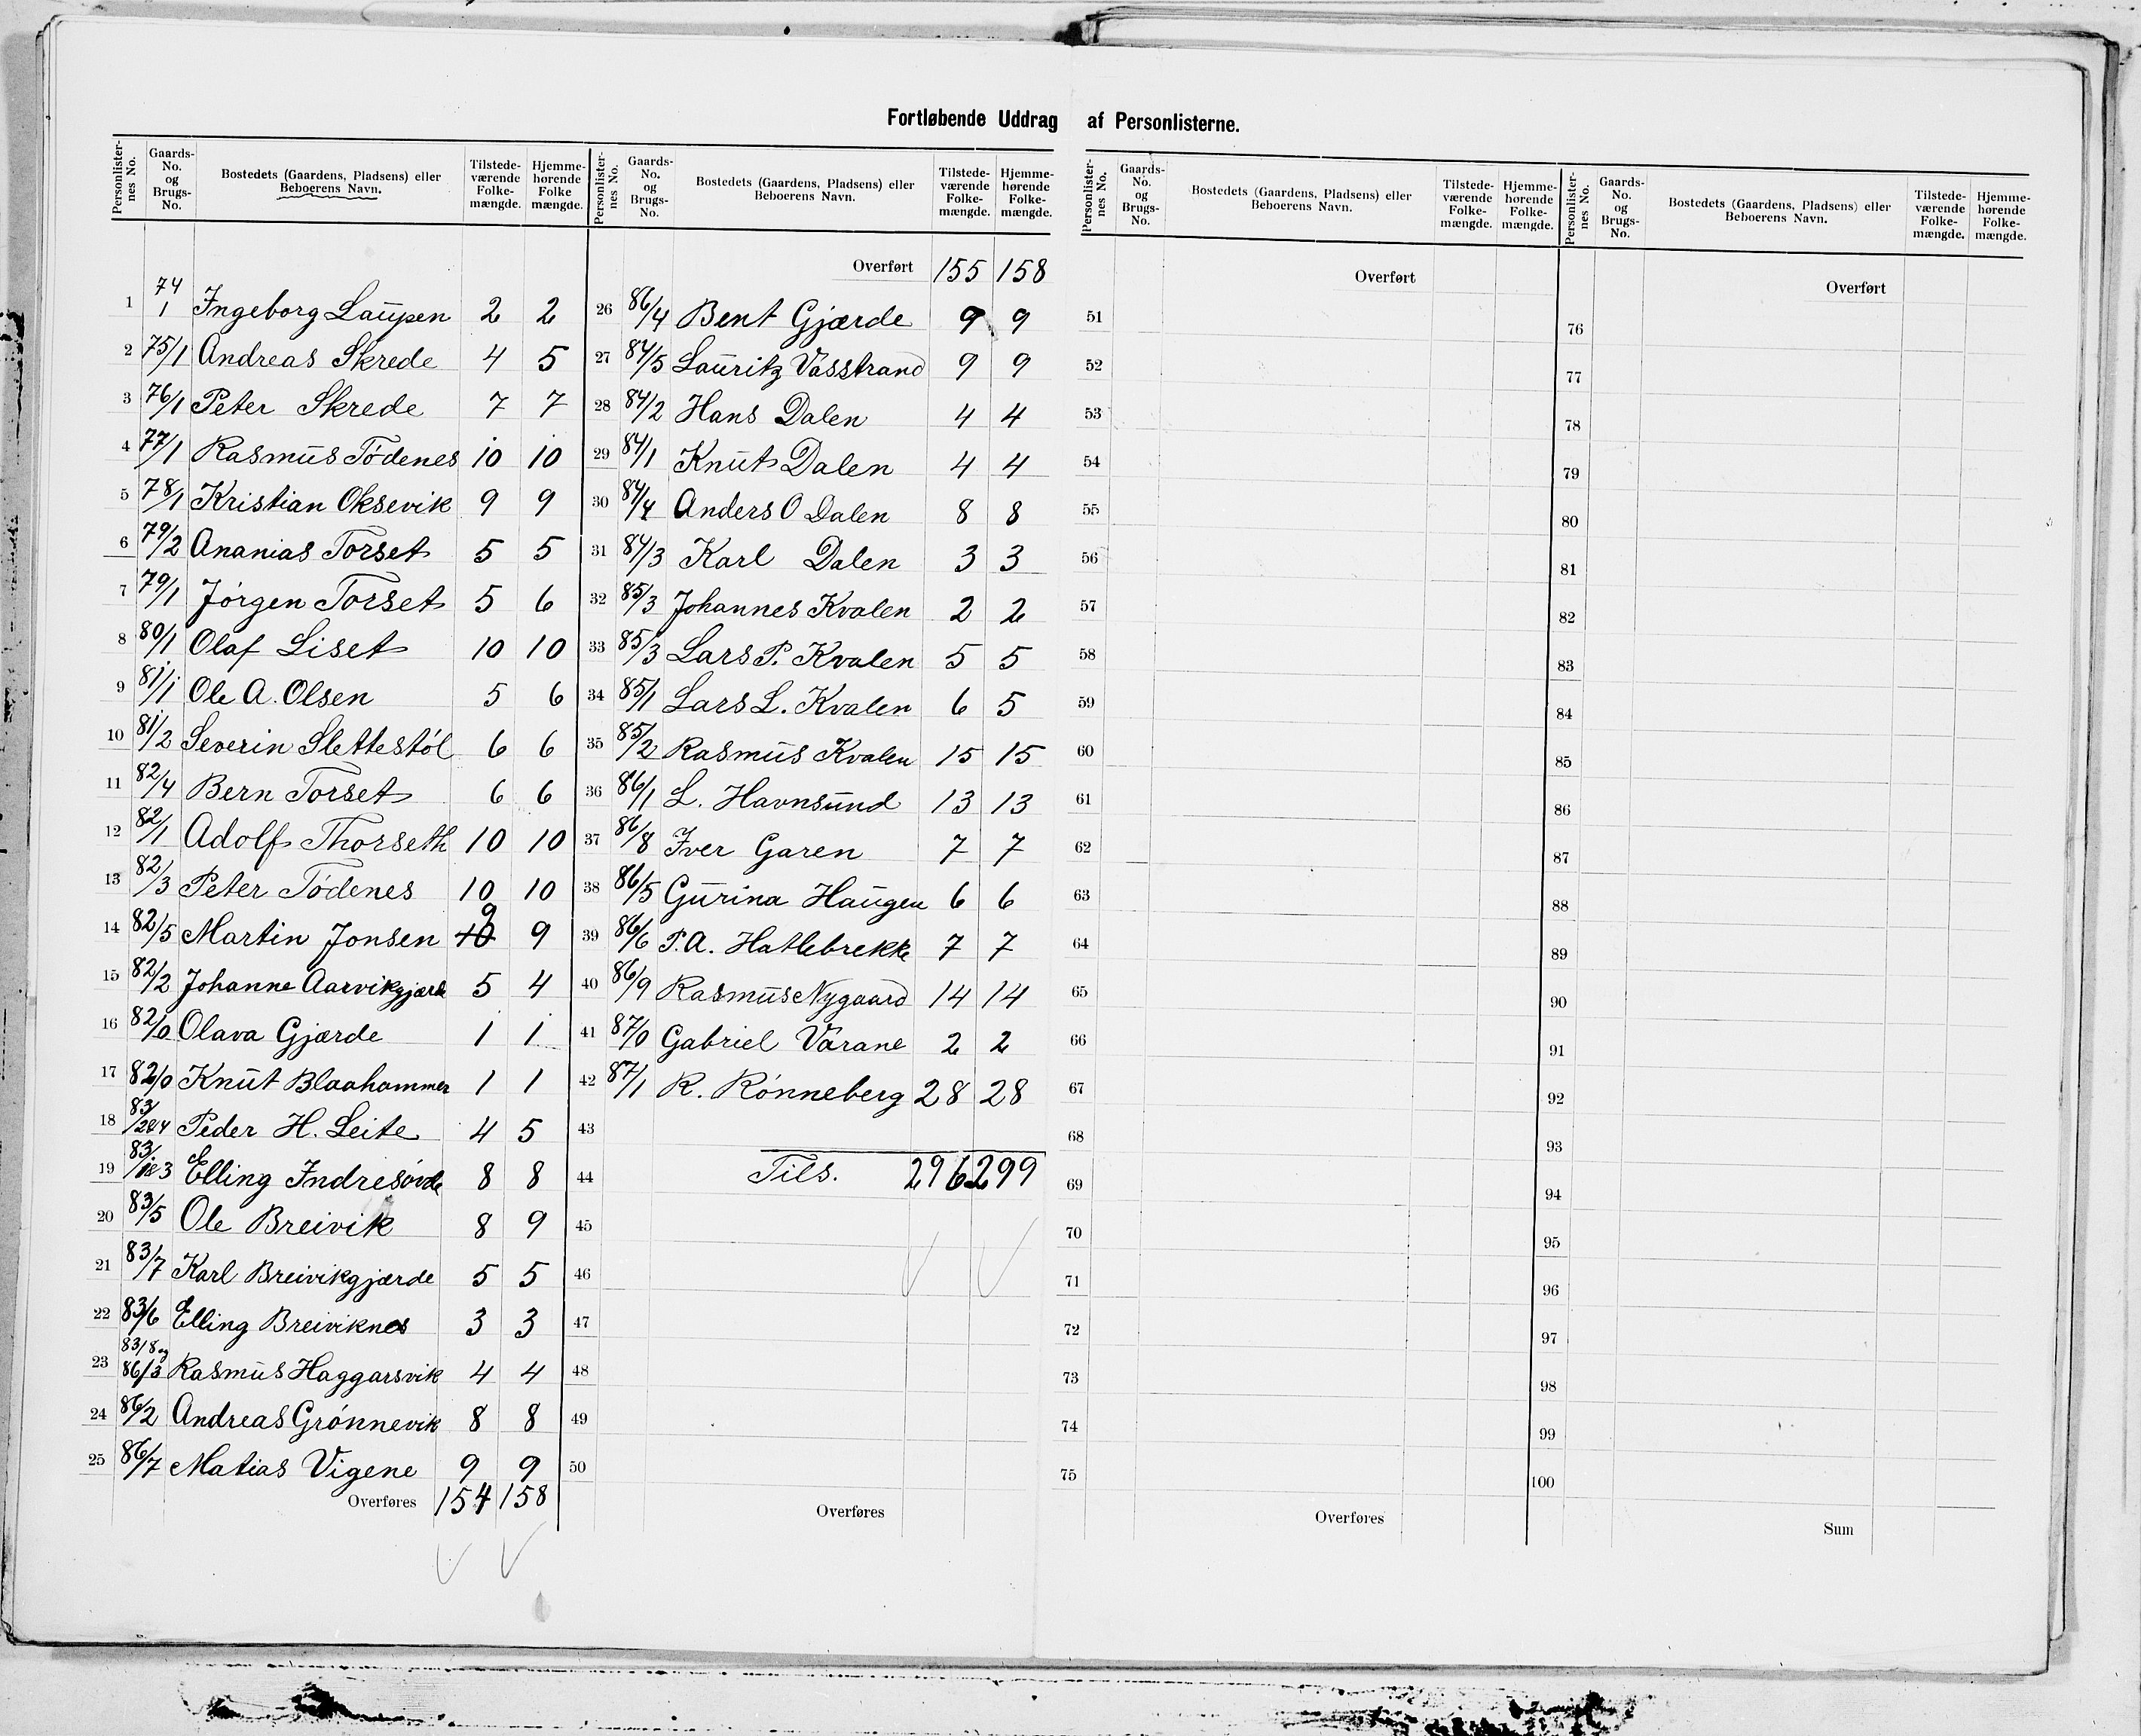 Fortløbende Uddrag af Personlisterne.
Personlister-nes No. Gaards-No. og Brugs-No. Bostedets (Gaardens, Pladsens) eller Beboerens Navn. Tilstede-værende Folke-mængde. Hjemme-hørende Folke mængde.
1 74/1 Ingeborg Laupen 2 2
2 75/1 Andreas Skrede 4 5
3 76/1 Peter Skrede 7 7
4 77/1 Rasmus Tødenes 10 10
5 78/1 Kristian Oksevik 9 9
6 79/2 Ananias Torset 5 5
7 79/1 Jørgen Torset 5 6
8 80/1 Olaf Liset 10 10
9 81/1 Ole A. Olsen 5 6
10 81/2 Severin Slettestøl 6 6
11 82/4 Bern Torset 6 6
12 82/1 Adolf Thorseth 10 10
13 82/3 Peter Tødenes 10 10
14 82/5 Martin Jonsen 10 9 9
15 82/2 Johanne Aarvikgjærde 5 4
16 82/0 Olava Gjærde 1 1
17 82/0 Knut Blaahammer 1 1
18 83/2&4 Peder H. Leite 4 5
19 83/1&3 Elling Indresøvde 8 8
20 83/5 Ole Breivik 8 9
21 83/7 Karl Breivikgjærde 5 5
22 83/6 Elling Breiviknes 3 3
23 83/8 og 86/3 Rasmus Haggarsvik 4 4
24 86/2 Andreas Grønnevik 8 8
25 86/7 Matias Vigene 9 9
Overføres 154 158
Personlister-nes No. Gaards-No. og Brugs-No. Bostedets (Gaardens, Pladsens) eller Beboerens Navn. Tilstede-værende Folke-mængde. Hjemme-hørende Folke-mængde.
Overført 155 158
26 86/4 Bent Gjærde 9 9
27 84/5 Lauritz Vasstrand 9 9
28 84/2 Hans Dalen 4 4
29 84/1 Knut Dalen 4 4
30 84/4 Anders O Dalen 8 8
31 84/3 Karl Dalen 3 3
32 85/3 Johannes Kvalen 2 2
33 85/3 Lars P. Kvalen 5 5
34 85/1 Lars L. Kvalen 6 5
35 85/2 Rasmus Kvalen 15 15
36 86/1 L. Havnsund 13 13
37 86/8 Iver Garen 7 7
38 86/5 Gurina Haugen 6 6
39 86/6 P.A. Hatlebrekke 7 7
40 86/9 Rasmus Nygaard 14 14
41 87/0 Gabriel Varane 2 2
42 87/1 R. Rønneberg 28 28
43
44 Tils. 296 299
45
46
47
48
49
50
Overføres
Personlister-nes No. Gaards-No. og Brugs-No. Bostedets (Gaardens, Pladsens) eller Beboerens Navn. Tilstede-værende Folke-mængde. Hjemme-hørende Folke-mængde.
Overført
51
52
53
54
55
56
57
58
59
60
61
62
63
64
65
66
67
68
69
70
71
72
73
74
75
Overføres
Personlister-nes No. Gaards-No. og Brugs-No. Bostedets (Gaardens, Pladsens) eller Beboerens Navn. Tilstede-værende Folke-mængde. Hjemme-hørende Folke-mængde.
Overført
76
77
78
79
80
81
82
83
84
85
86
87
88
89
90
91
92
93
94
95
96
97
98
99
100
Sum